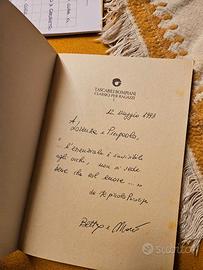 TASCABILI BOMPIANI
CLASSICI PER RAGAZZI
12 Maggio 1993
A,
Lorenza e Pierpaolo,
"l'essenziale è invisibile
agli occhi, non si vede
bene che col cuore..."
da Il piccolo Principe
subito.it